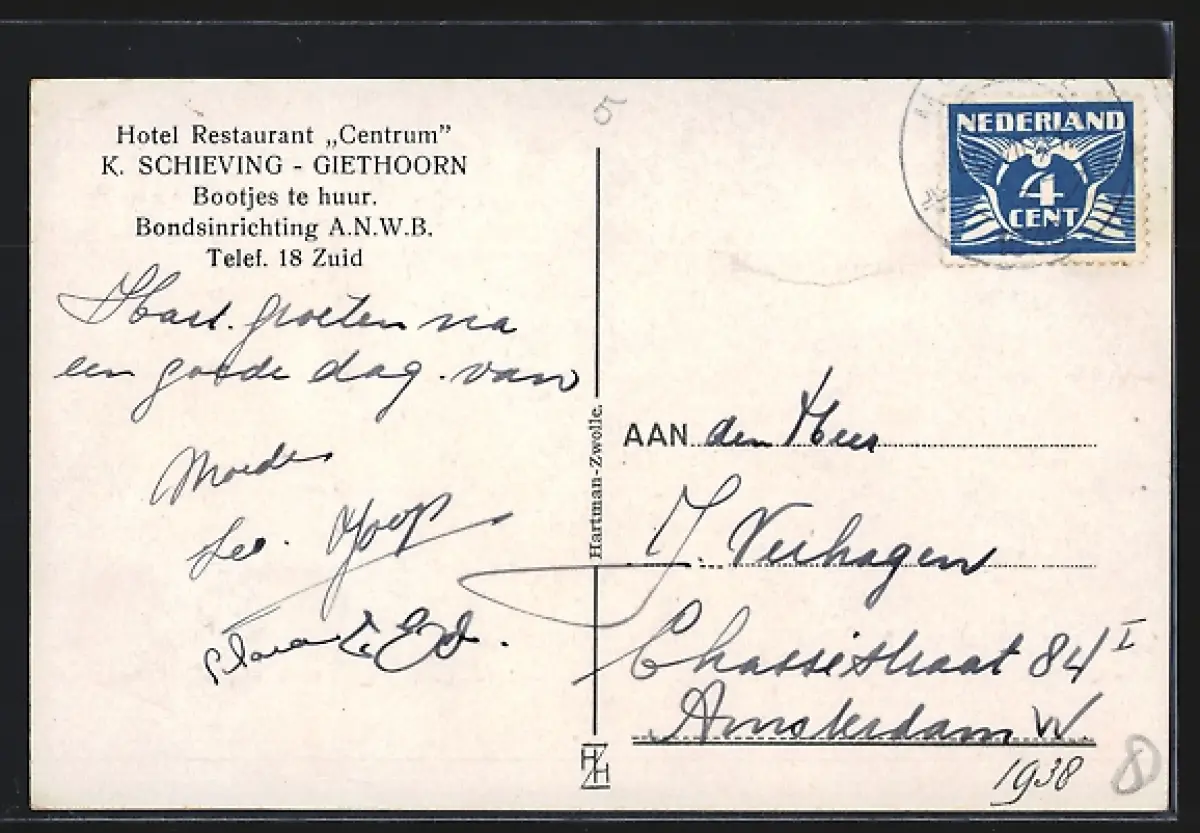 Hotel Restaurant „Centrum”
K. SCHIEVING - GIETHOORN
Bootjes te huur.
Bondsinrichting A.N.W.B.
Telef. 18 Zuid
Hart. groeten na
een goede dag van
Moeder
Leo. Joop
Clara & Ed.
Hartman-Zwolle.
HZH
5
NEDERLAND
4
CENT
AAN den Heer
J. Verhagen
Chassestraat 84 I
Amsterdam W.
1938
8